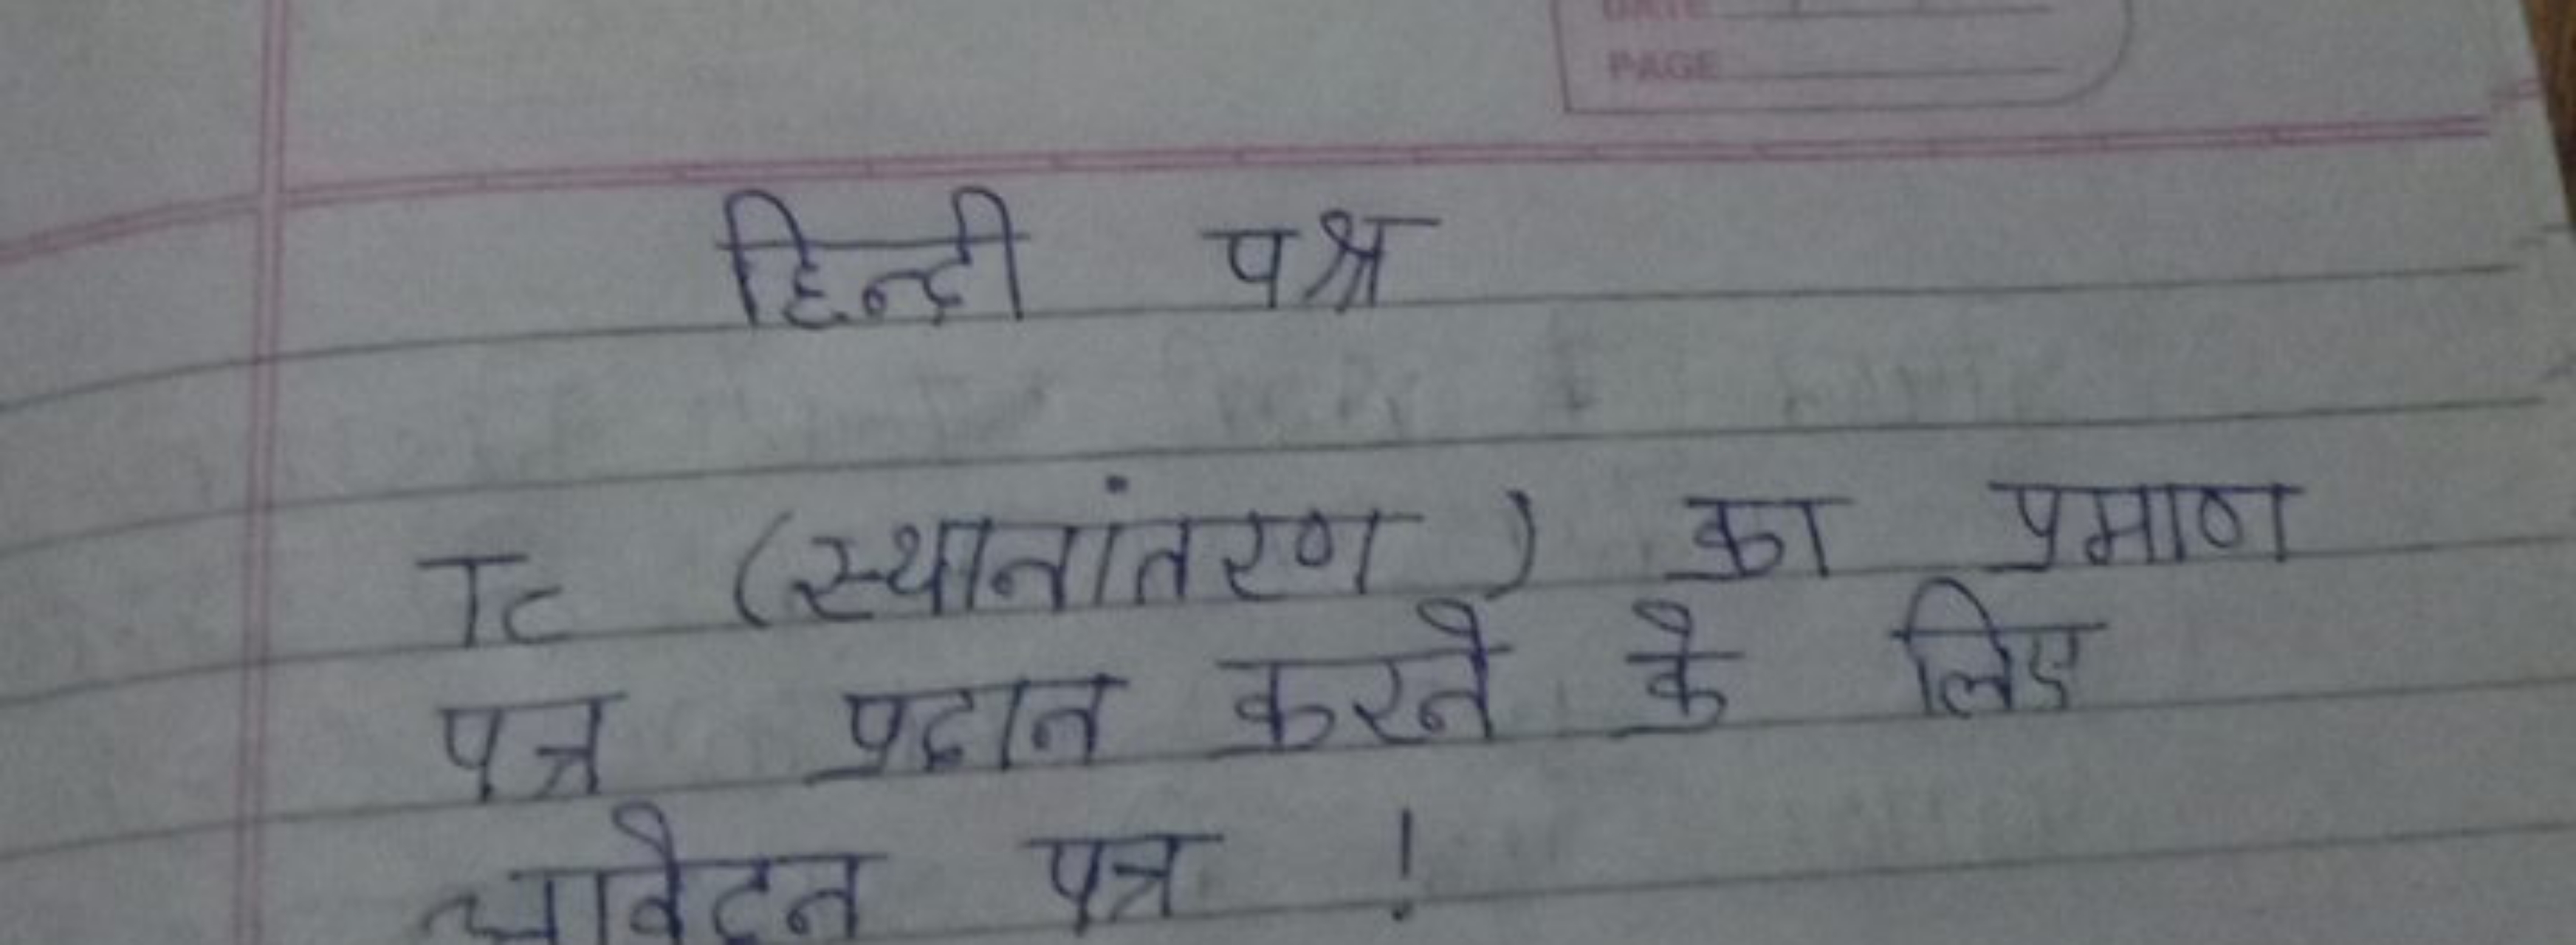 DATE
PAGE
हिन्दी पश्र
Tc (स्थानांतरण) का प्रमाण
पत्र प्रदान करने के लिए
आवेदन पत्र !